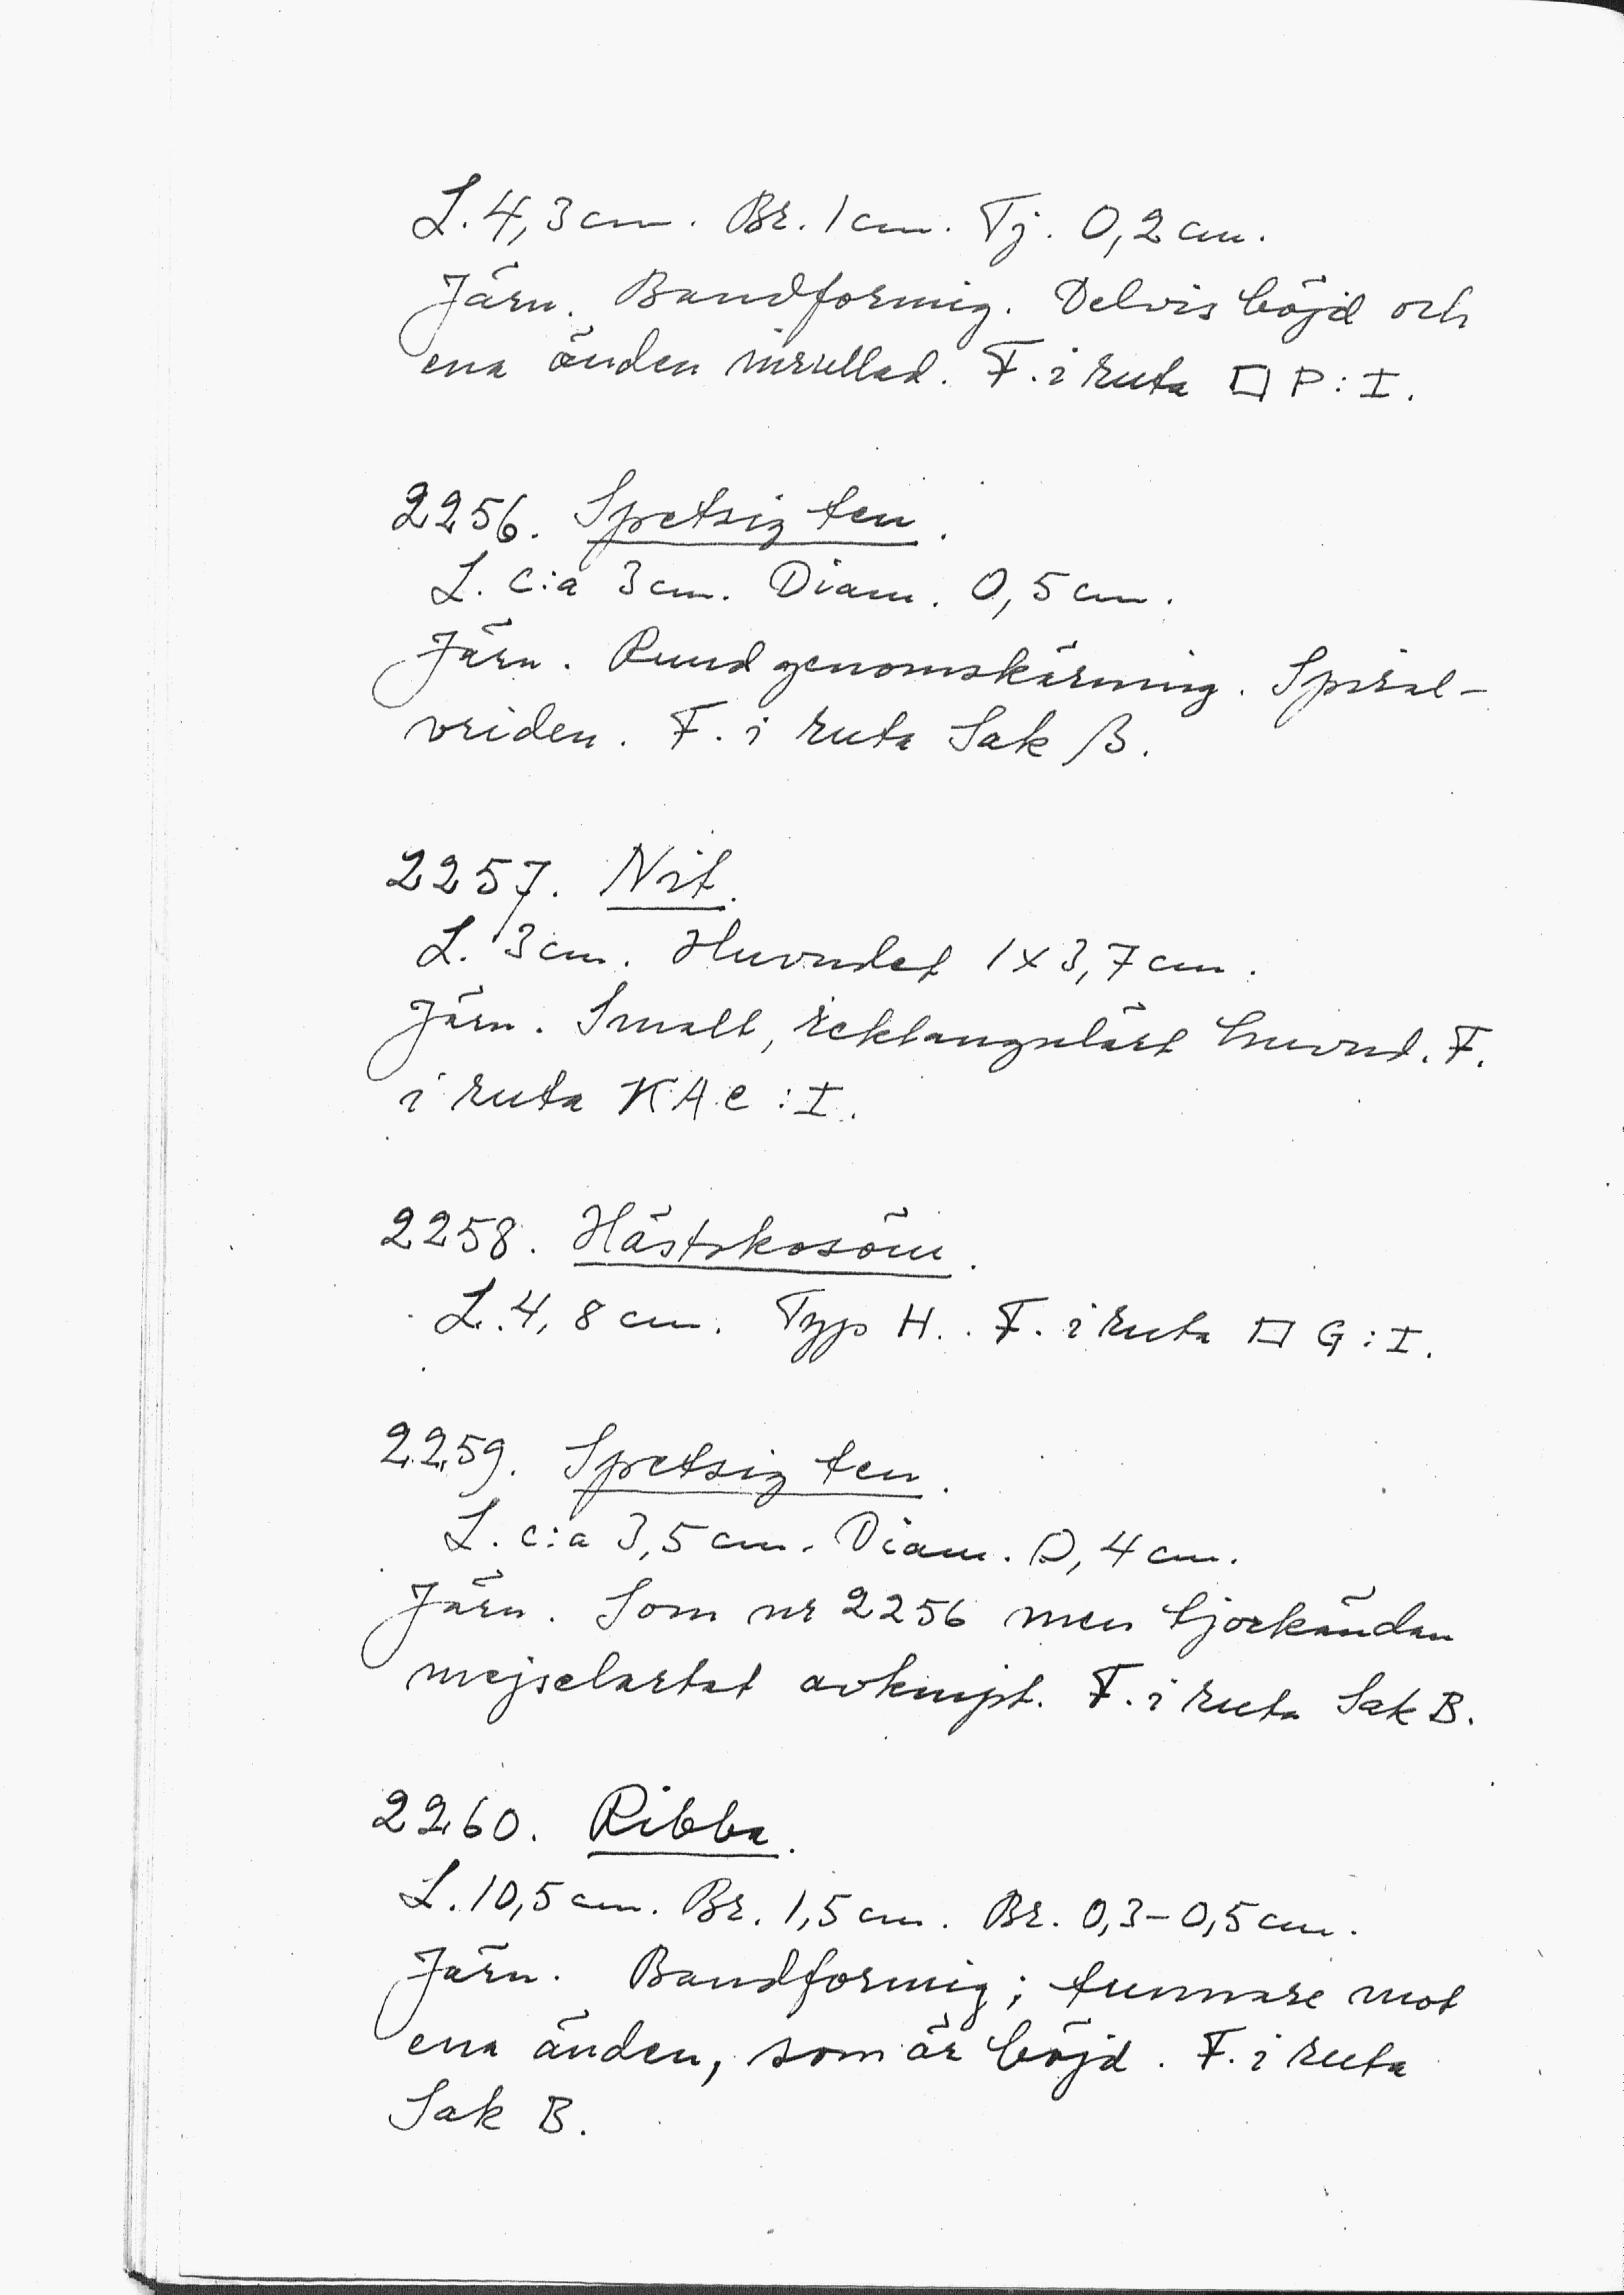 L. 4,3 cm. Br. 1 cm. Tj. 0,2 cm.
Järn. Bandformig. Delvis böjd och
ena änden inrullad. F. i ruta □ P : I.
2256. Spetsig ten.
L. c:a 3 cm. Diam. 0,5 cm.
Järn. Rund genomskärning. Spiral-
vriden. F. i ruta Sak B.
2257. Nit.
L. 3 cm. Huvudet 1 x 3,7 cm.
Järn. Smalt, rektangulärt huvud. F.
i ruta KAC : I.
2258. Hästskosöm.
L. 4,8 cm. Typ H. F. i ruta □ G : I.
2259. Spetsig ten.
L. c:a 3,5 cm. Diam. 0,4 cm.
Järn. Som nr 2256 men tjockändan
mejselartat avknipt. F. i ruta Sak B.
2260. Ribba.
L. 10,5 cm. Br. 1,5 cm. Br. 0,3-0,5 cm.
Järn. Bandformig; tunnare mot
ena änden, som är böjd. F. i ruta
Sak B.